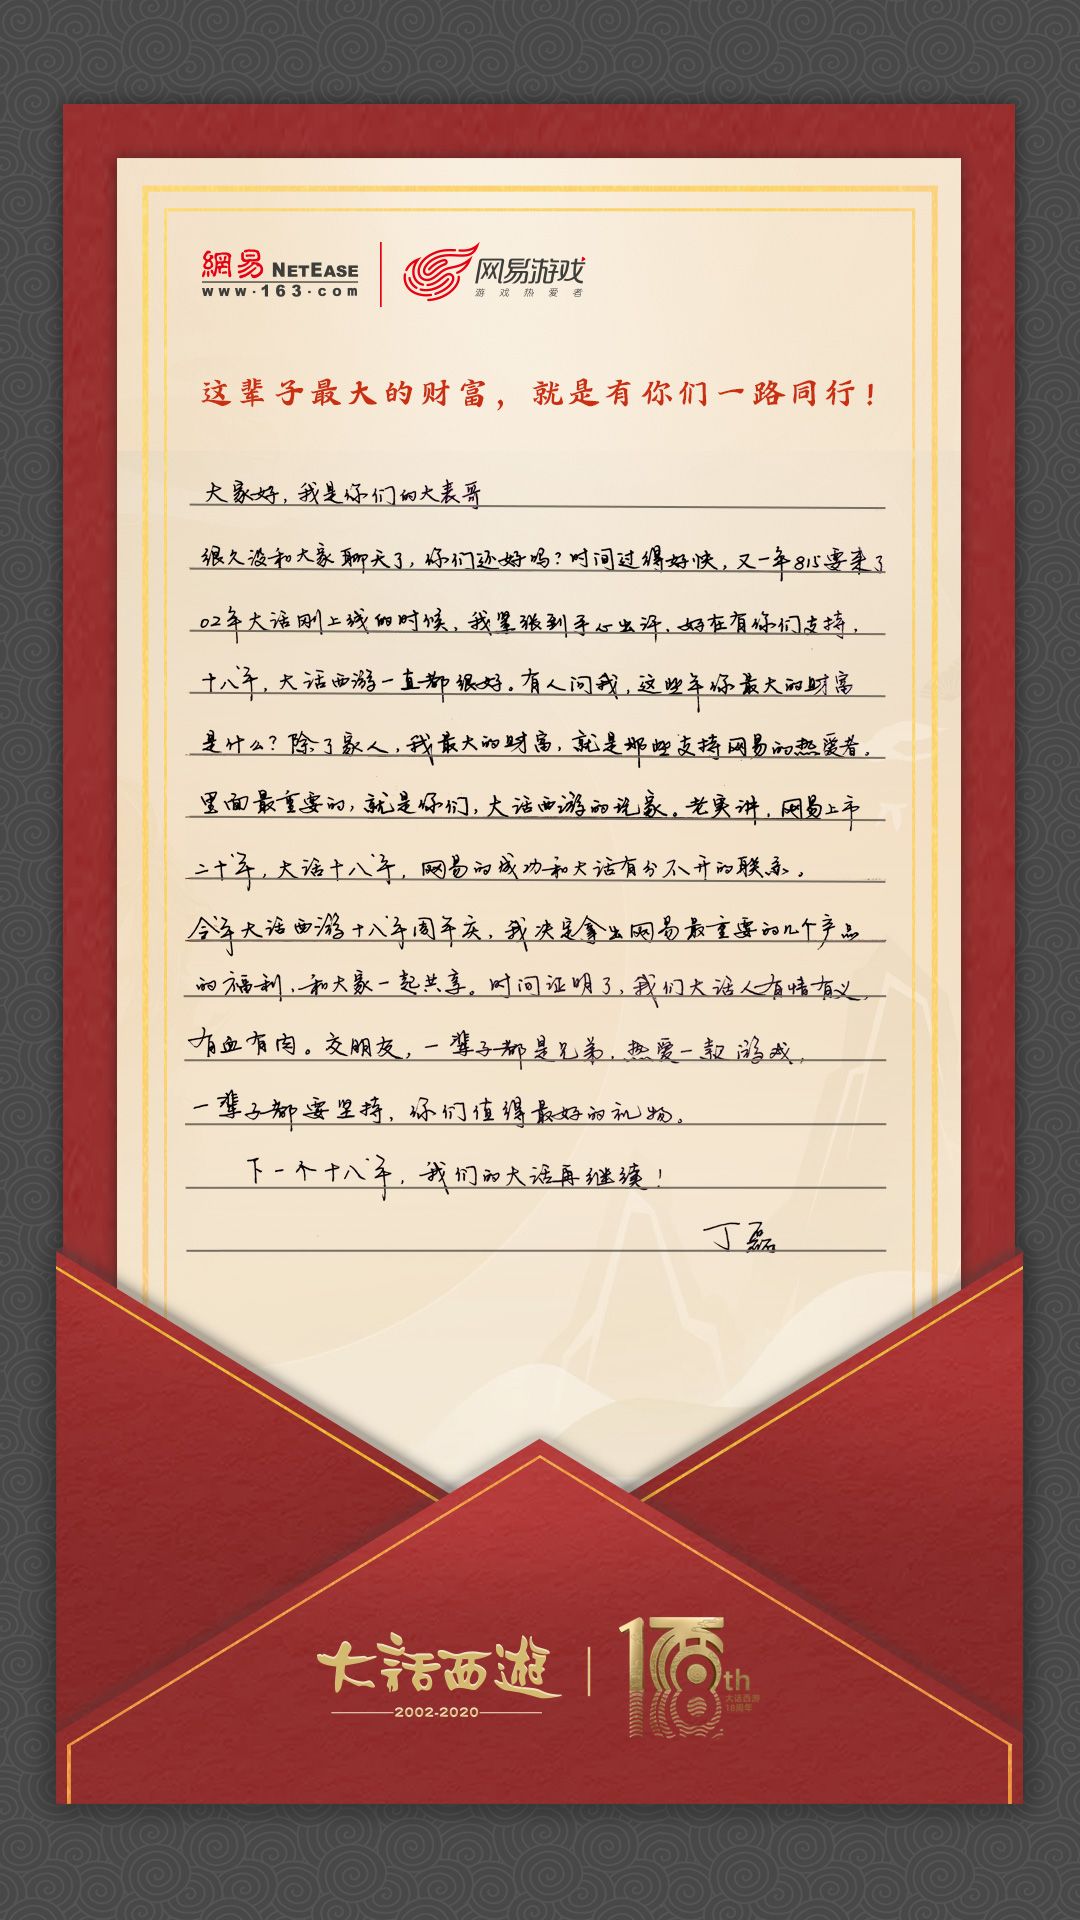 網易 NETEASE
www.163.com
网易游戏
游戏热爱者
这辈子最大的财富，就是有你们一路同行！
大家好，我是你们的大表哥
很久没和大家聊天了，你们还好吗？时间过得好快，又一年815要来了
02年大话刚上线的时候，我紧张到手心出汗，好在有你们支持，
十八年，大话西游一直都很好。有人问我，这些年你最大的财富
是什么？除了家人，我最大的财富，就是那些支持网易的热爱者。
里面最重要的，就是你们，大话西游的玩家。老实讲，网易上市
二十年，大话十八年，网易的成功和大话有分不开的联系。
今年大话西游十八年周年庆，我决定拿出网易最重要的几个产品
的福利，和大家一起共享。时间证明了，我们大话人有情有义，
有血有肉。交朋友，一辈子都是兄弟，热爱一款游戏，
一辈子都要坚持，你们值得最好的礼物。
下一个十八年，我们的大话再继续！
丁磊
大话西游
2002-2020
18th
大话西游
18周年